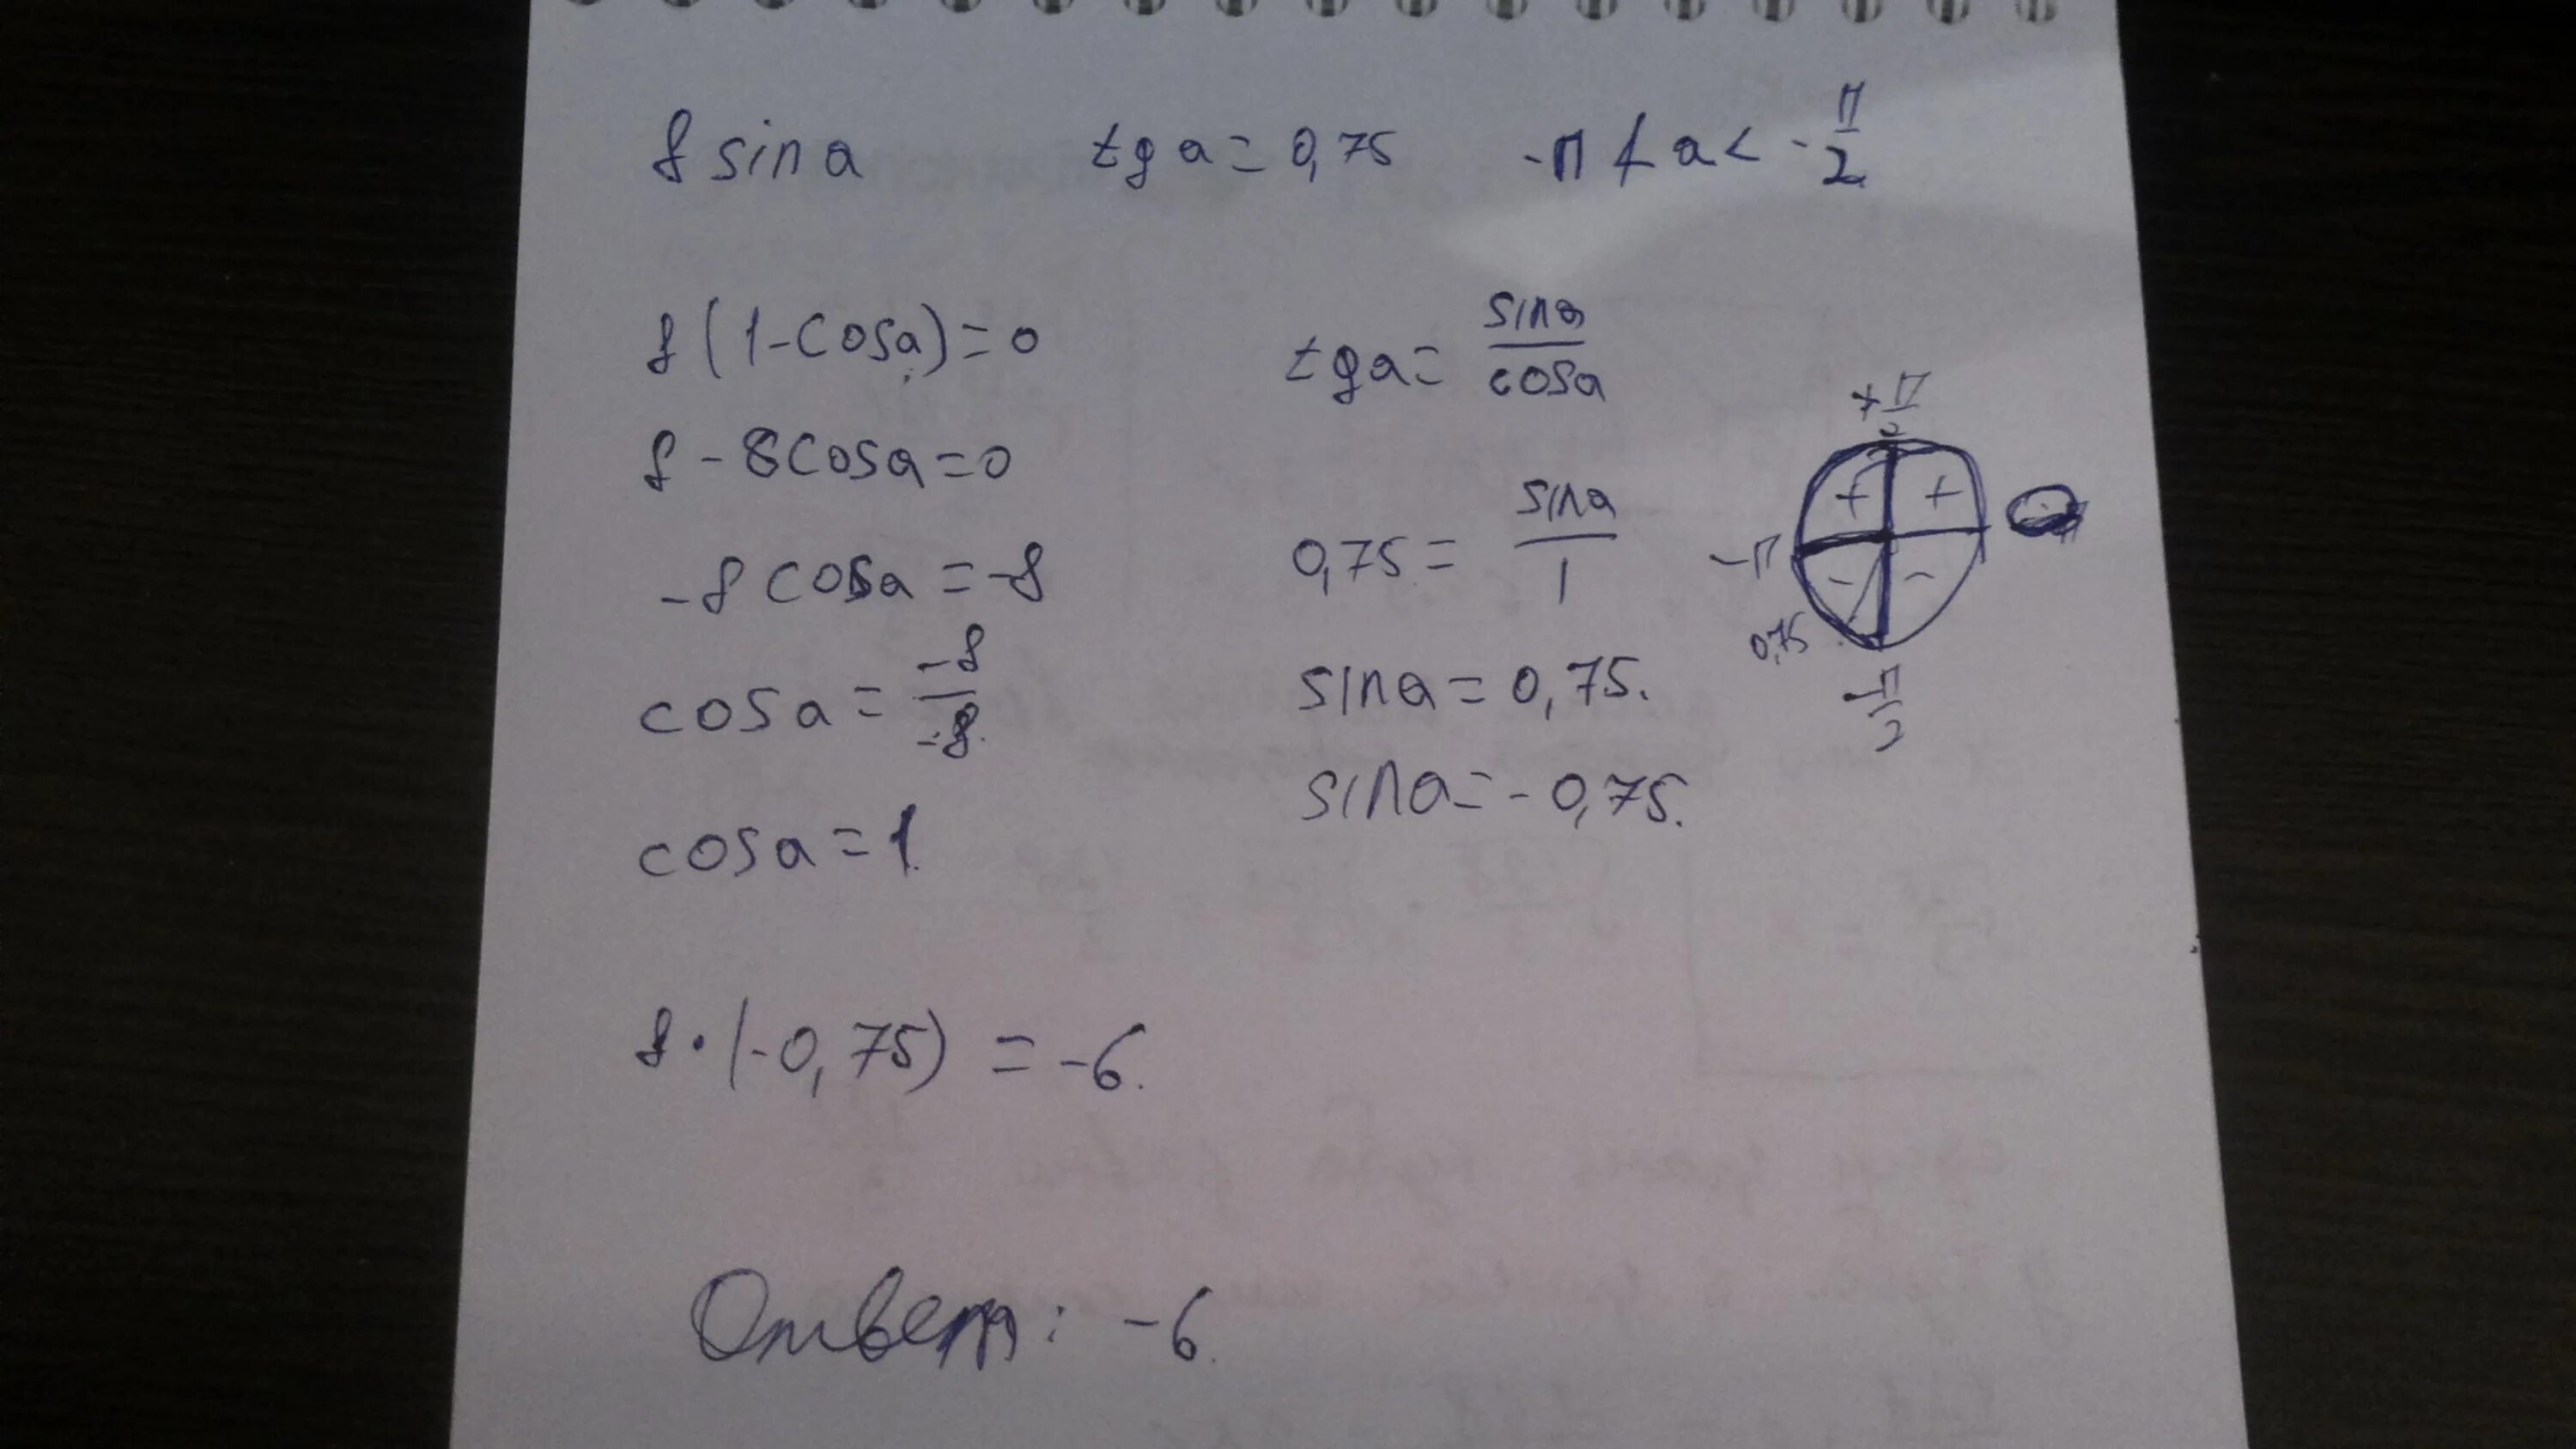 8 sin a tg a = 0,75 -π < a < -π/2
8(1-cosa)=0
8 - 8cosa=0
-8 cosa = -8
cosa = -8/-8
cosa = 1.
tga = sina/cosa
0,75 = sina/1
sina = 0,75.
sina = - 0,75.
+π/2
+ +
-π
- -
0,75
-π/2
8 · (-0,75) = -6.
Ответ: -6.